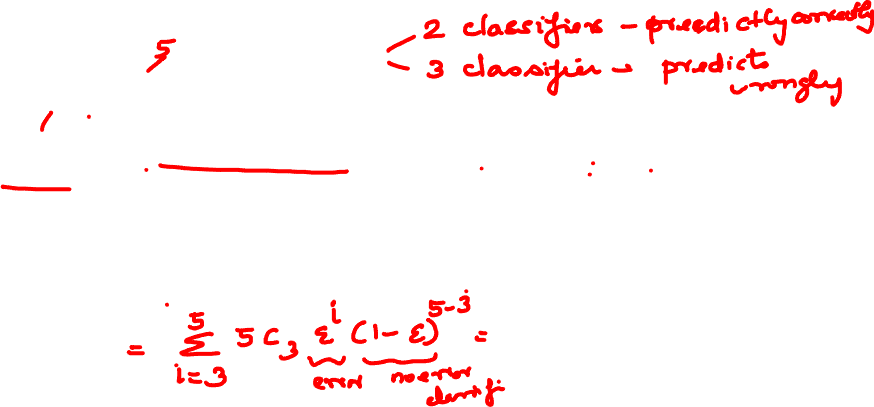 2 classifiers - preedictly correctly
5
3 classifier - predicts
wrongly
= \sum_{i=3}^{5} 5C_3 ε^i (1-ε)^{5-3} =
error no error